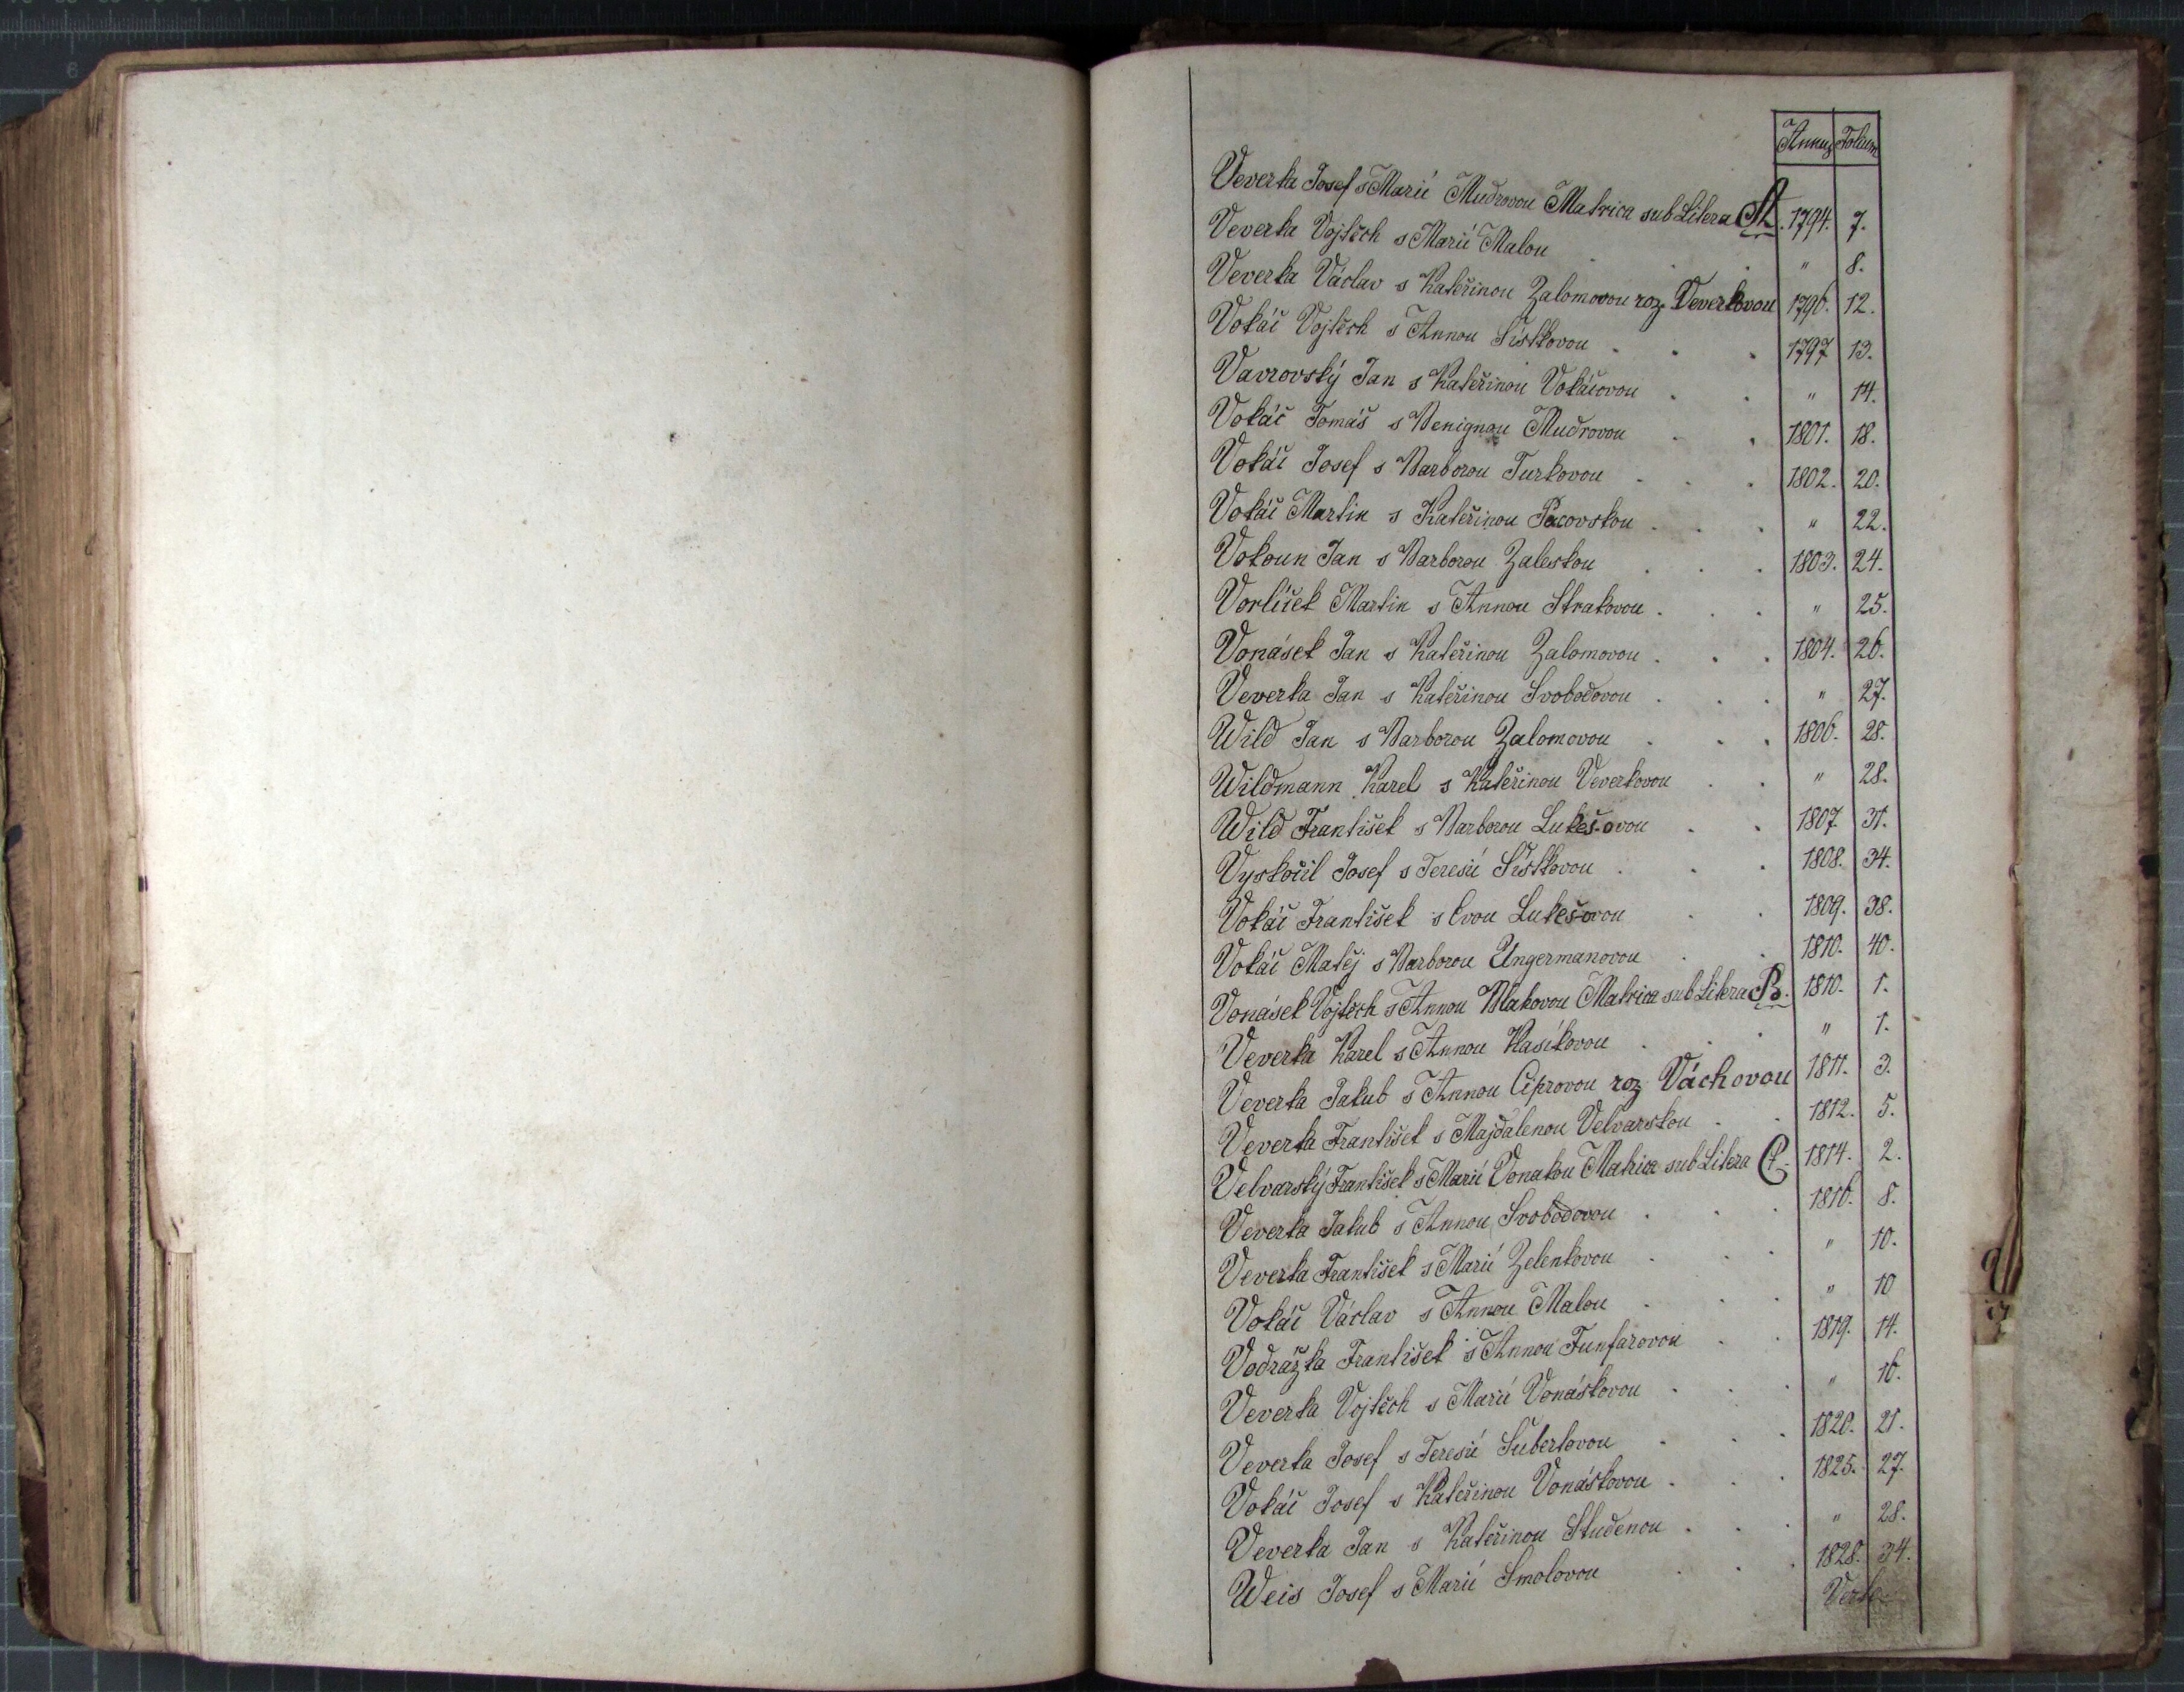 Annus Folium
Veverka Josef s Marií Mudrovou Matrica sub Litera A. 1794. 7.
Veverka Vojtěch s Marií Malou . . " 8.
Veverka Václav s Kateřinou Zalomovou roz. Veverkovou 1796. 12.
Vokáč Vojtěch s Annou Šístkovou . . . 1797 13.
Vavrovský Jan s Kateřinou Vokáčovou . . " 14.
Vokáč Tomáš s Benignou Mudrovou . . 1801. 18.
Vokáč Josef s Barborou Turkovou . . . 1802. 20.
Vokáč Martin s Kateřinou Pacovskou . . . " 22.
Vokoun Jan s Barborou Zaleskou . . . 1803. 24.
Vorlíček Martin s Annou Strakovou . . . " 25.
Vonásek Jan s Kateřinou Zalomovou . . . 1804. 26.
Veverka Jan s Kateřinou Svobodovou . . . " 27.
Wild Jan s Barborou Zalomovou . . . 1806. 28.
Wildmann Karel s Kateřinou Veverkovou . . " 28.
Wild František s Barborou Lukešovou . . 1807 31.
Vyskočil Josef s Teresií Šístkovou . . . 1808. 34.
Vokáč František s Evou Lukešovou . . 1809. 38.
Vokáč Matěj s Barborou Ungermanovou . . 1810. 40.
Vonásek Vojtěch s Annou Blahovou Matrica sub Litera B. 1810. 1.
Veverka Karel s Annou Hasíkovou . . . " 1.
Veverka Jakub s Annou Ciprovou roz Váchovou 1811. 3.
Veverka František s Majdalenou Velvarskou . . 1812. 5.
Velvarský František s Marií Vonakou Matrica sub Litera C. 1814. 2.
Veverka Jakub s Annou Svobodovou . . . 1816. 8.
Veverka František s Marií Zelenkovou . . . " 10.
Vokáč Václav s Annou Malou . . . " 10
Vodrážka František s Annou Funfarovou . . 1819. 14.
Veverka Vojtěch s Marií Vonáskovou . . . " 16.
Veverka Josef s Teresií Šubertovou . . . 1820. 21.
Vokáč Josef s Kateřinou Vonáskovou . . . 1825. 27.
Veverka Jan s Kateřinou Studenou . . . " 28.
Weis Josef s Marií Smolovou . . . 1828. 34.